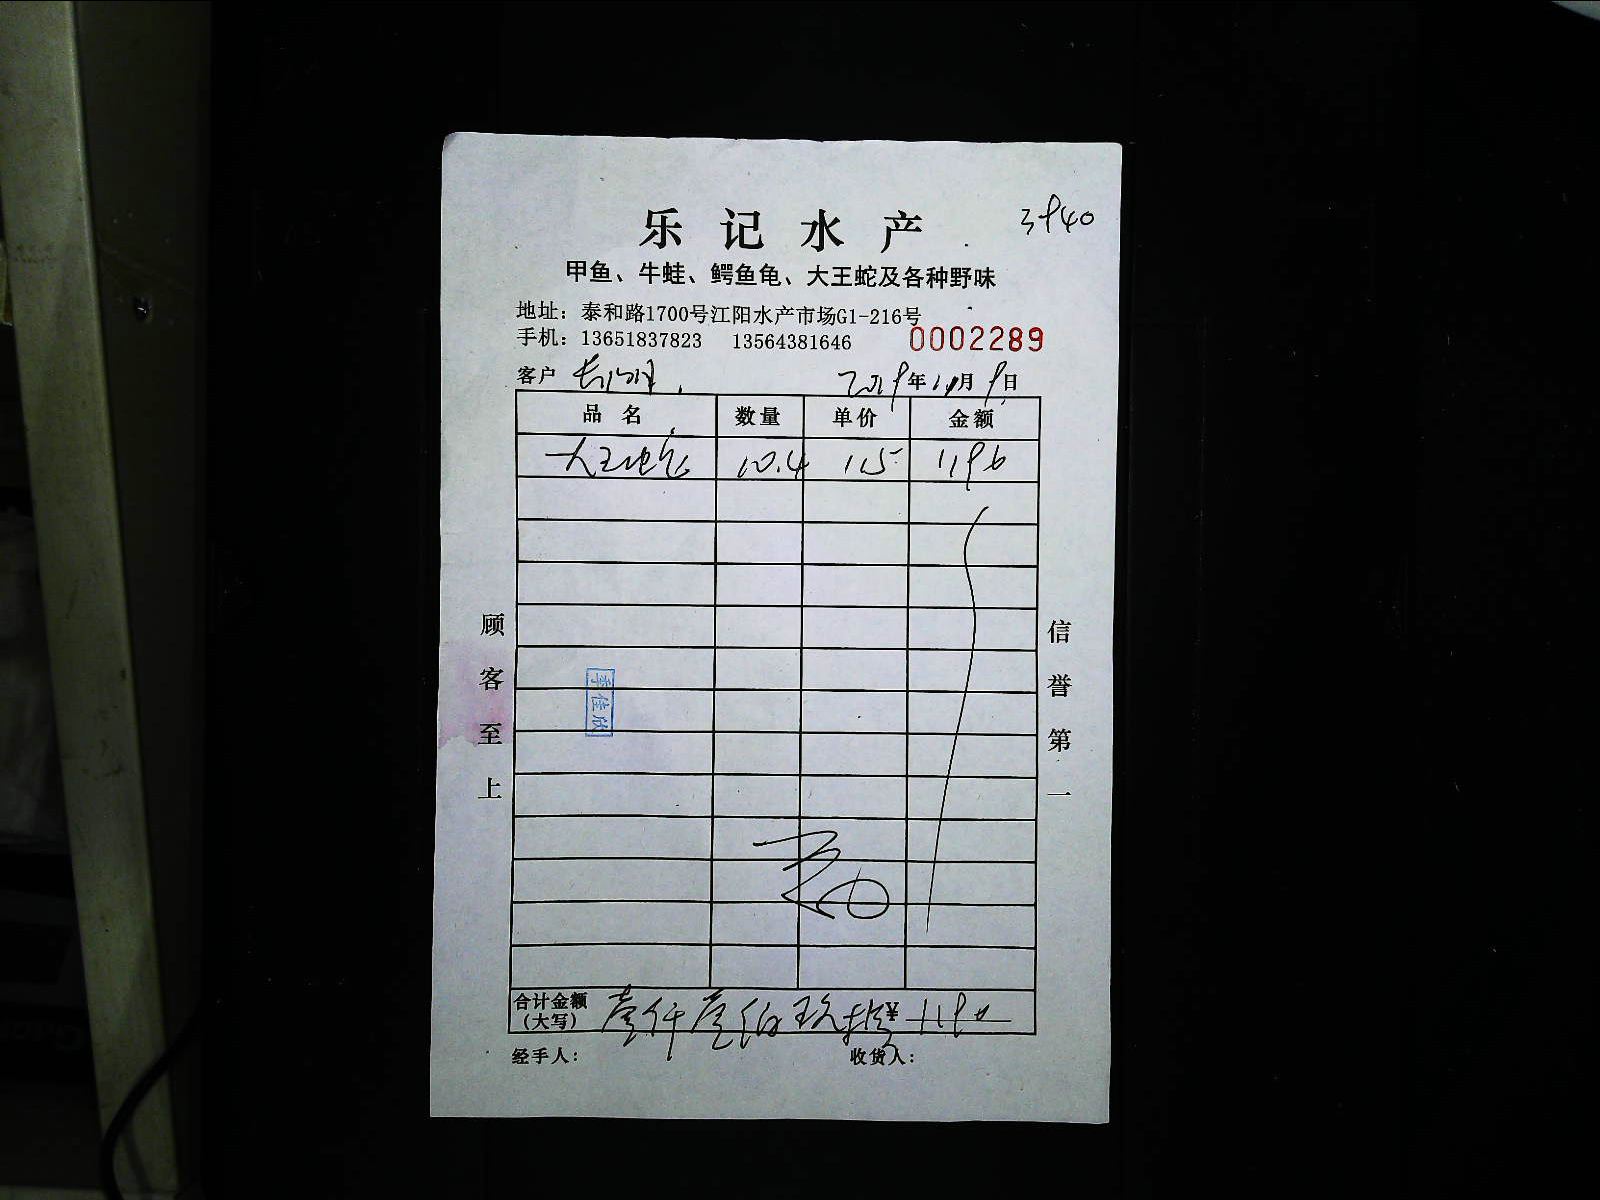 乐记水产
3940
甲鱼、牛蛙、鳄鱼龟、大王蛇及各种野味
地址：泰和路1700号江阳水产市场G1-216号
手机：13651837823 13564381646 0002289
客户 2019年11月9日
品名 数量 单价 金额
大王蛇 10.4 115 1196
顾客至上
信誉第一
季佳欣
合计金额（大写） 壹仟壹佰玖拾 ¥ 1190
经手人： 收货人：